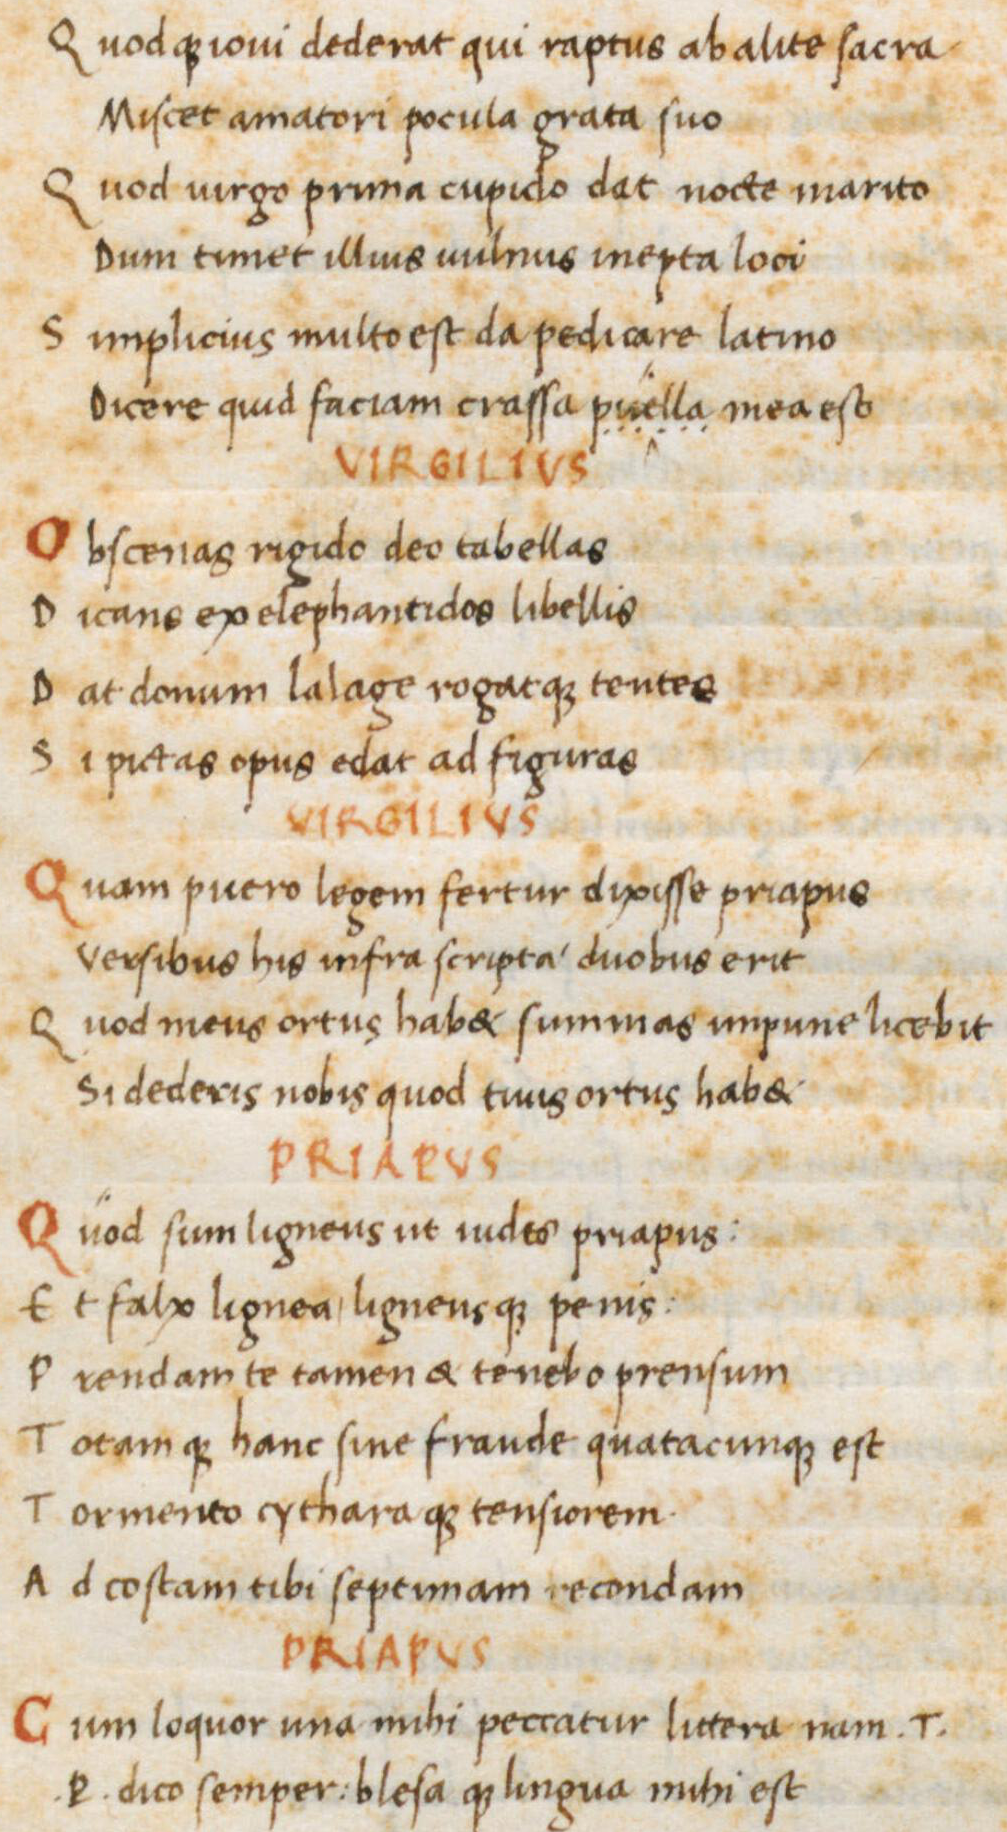 Quodq; ioui dederat qui raptus ab alite sacra
Miscet amatori pocula grata suo
Quod uirgo prima cupido dat nocte marito
Dum timet illius uulnus inepta loci
Simplicius multo est da pedicare latino
Dicere quid faciam crassa puella mea est
VIRGILIVS
Obscenas rigido deo tabellas
Dicans ex elephantidos libellis
Dat donum lalage rogatq; tentes
Si pictas opus edat ad figuras
VIRGILIVS
Quam puero legem fertur dixisse priapus
Versibus his infra scripta duobus erit
Quod meus ortus hab& summas impune licebit
Si dederis nobis quod tuus ortus hab&
PRIAPVS
Quod sum ligneus ut uides priapus:
Et falx lignea ligneusq; penis:
Prendam te tamen & tenebo prensum
Totamq; hanc sine fraude quatacunq; est
Tormento cytharaq; tensiorem.
Ad costam tibi septimam recondam
PRIAPVS
Cum loquor una mihi peccatur littera nam .T.
.P. dico semper: blesaq; lingua mihi est